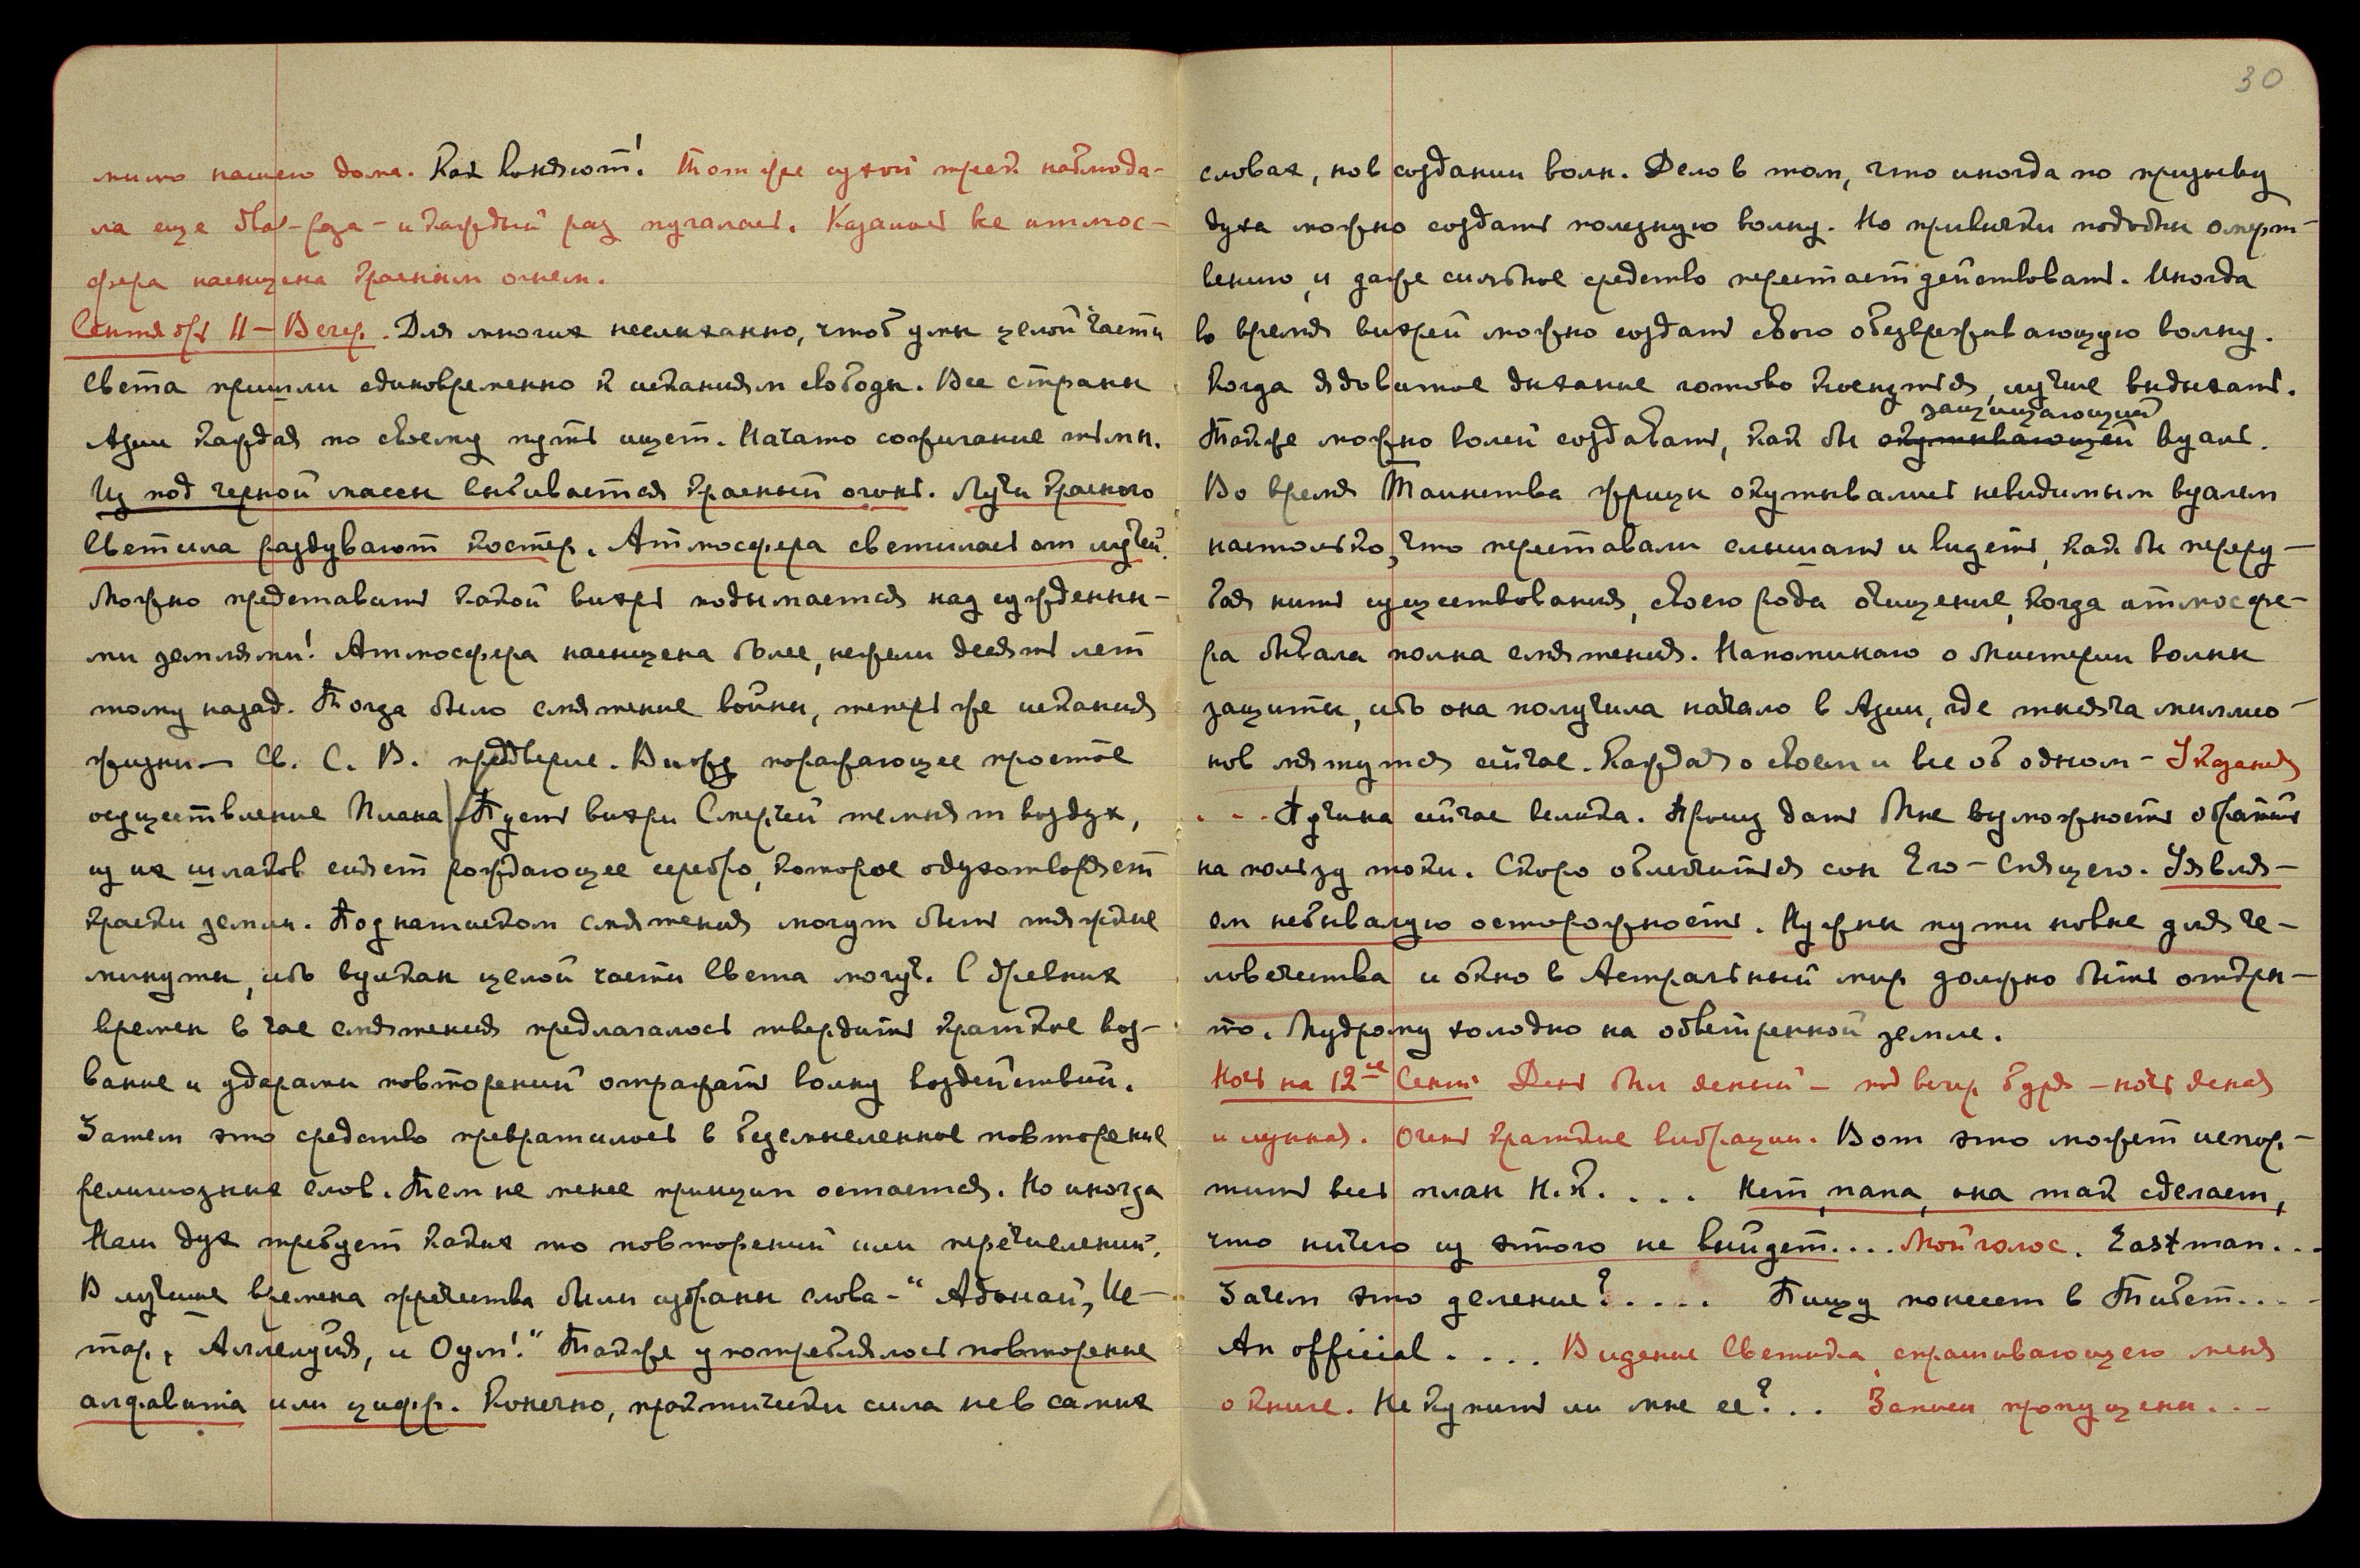 мимо нашего дома. Как воняют! Тот же сухой треск наблюда-
ла еще два-раза - и каждый раз пугалась. Казалось вся атмос-
фера насыщена красным огнем.
Сентябрь 11 - Вечер. Для многих неслыханно, чтоб умы целой части
Света пришли единовременно к исканиям свободы. Все страны
Азии каждая по своему путь ищет. Начато сожигание тьмы.
Из под черной массы выбивается красный огонь. Лучи красного
Светила раздувают костер. Атмосфера светилась от лучей.
Можно представить какой вихрь подымается над сужденны-
ми землями! Атмосфера насыщена более, нежели десять лет
тому назад. Тогда было смятение войны, теперь же искания
жизни - Св. С. В. преддверие. Вижу поражающее простое
осуществление Плана. Пусть вихри Смерчей темнят воздух,
из их шлаков сияет рождающее серебро, которое одухотворяет
краски земли. Под натиском смятения могут быть тяжкие
минуты, ибо вулкан целой части Света могуч. С древних
времен в час смятения предлагалось твердить краткое воз-
вание и ударами повторений отражать волну воздействий.
Затем это средство превратилось в безсмысленное повторение
религиозных слов. Тем не менее принцип остается. Но иногда
Наш дух требует каких то повторений или перечислений.
В лучшие времена жречества были избраны слова - "Адонай, Ис-
тар, Аллелуйя, и Оум!" Также употреблялось повторение
алфавита или цифр. Конечно, практически сила не в самих
30
словах, но в создании волн. Дело в том, что иногда по призыву
духа можно создать полезную волну. Но привычки подобны омерт-
вению, и даже сильное средство перестает действовать. Иногда
во время вихрей можно создать свою обезвреживающую волну.
Когда ядовитое дыхание готово коснуться, лучше выдыхать.
защищающий
Также можно волей создавать, как бы окутывающей вуаль.
Во время Таинства жрицы окутывались невидимым вуалем
настолько, что переставали слышать и видеть, как бы переру-
бая нить существования, своего рода очищение, когда атмосфе-
ра бывала полна смятения. Напоминаю о Мистерии волны
защиты, ибо она получила начало в Азии, где тысяча миллио-
нов мятутся сейчас. Каждая о своем и все об одном - Указания
. . . Пучина сейчас велика. Прошу дать Мне возможность обратить
на пользу токи. Скоро облегчится сон Его - Спящего. Уявля-
ем небывалую осторожность. Нужны пути новые для че-
ловечества и окно в Астральный мир должно быть откры-
то. Мудрому холодно на обветренной земле.
Ночь на 12ое Сент. День был ясный - под вечер буря - ночь ясная
и лунная. Очень краткие вибрации. Вот это может испор-
тить весь план Н.К. . . . Нет, папа, она так сделает,
что ничего из этого не выйдет.... Мой голос. Eastman...
Зачем это деление? ..... Пищу понесем в Тибет....
An official .... Видение Светика, спрашивающего меня
о книге. Не купить ли мне ее? . . Записи пропущены...